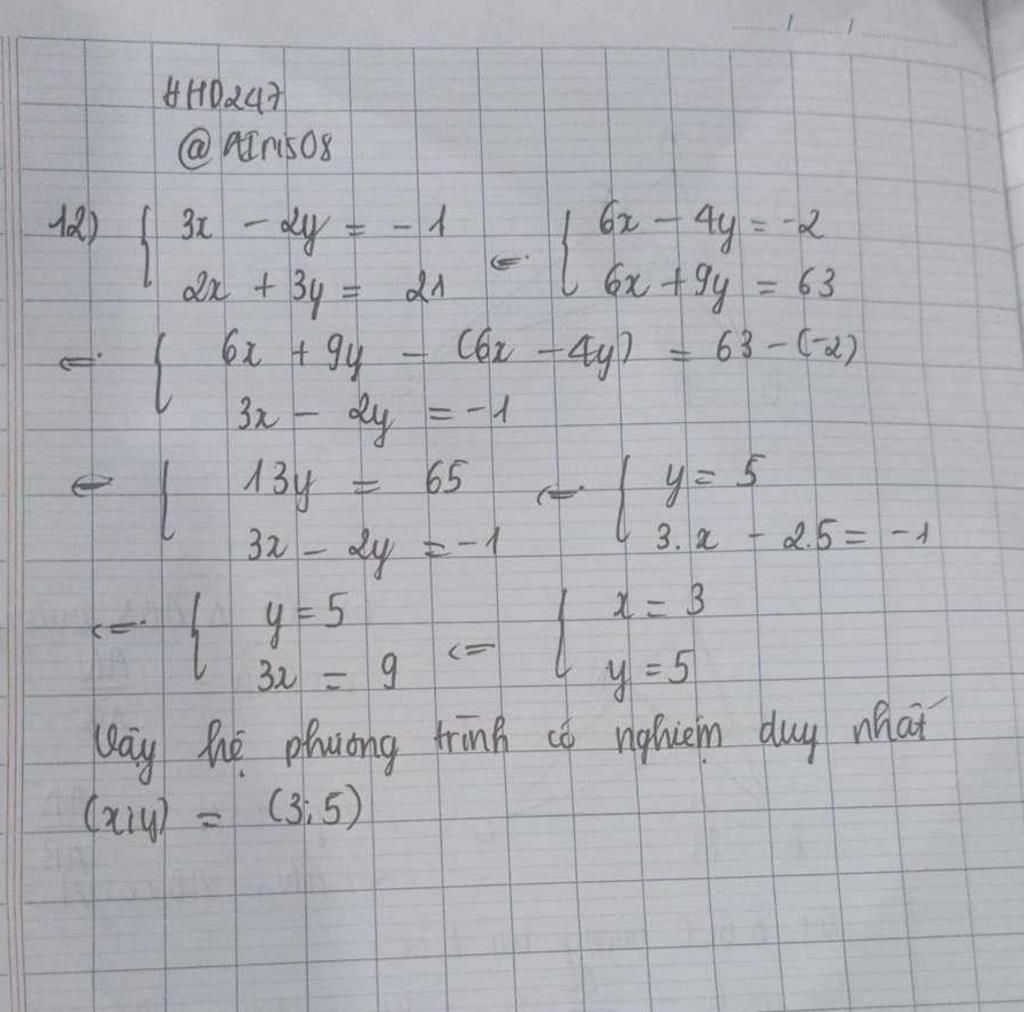 HHD247
@AIris08
12) { 3x - 2y = -1 <=> { 6x - 4y = -2
2x + 3y = 21 6x + 9y = 63
<=> { 6x + 9y - (6x - 4y) = 63 - (-2)
3x - 2y = -1
<=> { 13y = 65 <=> { y = 5
3x - 2y = -1 3.x - 2.5 = -1
<=> { y = 5 <=> { x = 3
3x = 9 y = 5
Vậy hệ phương trình có nghiệm duy nhất
(x;y) = (3;5)